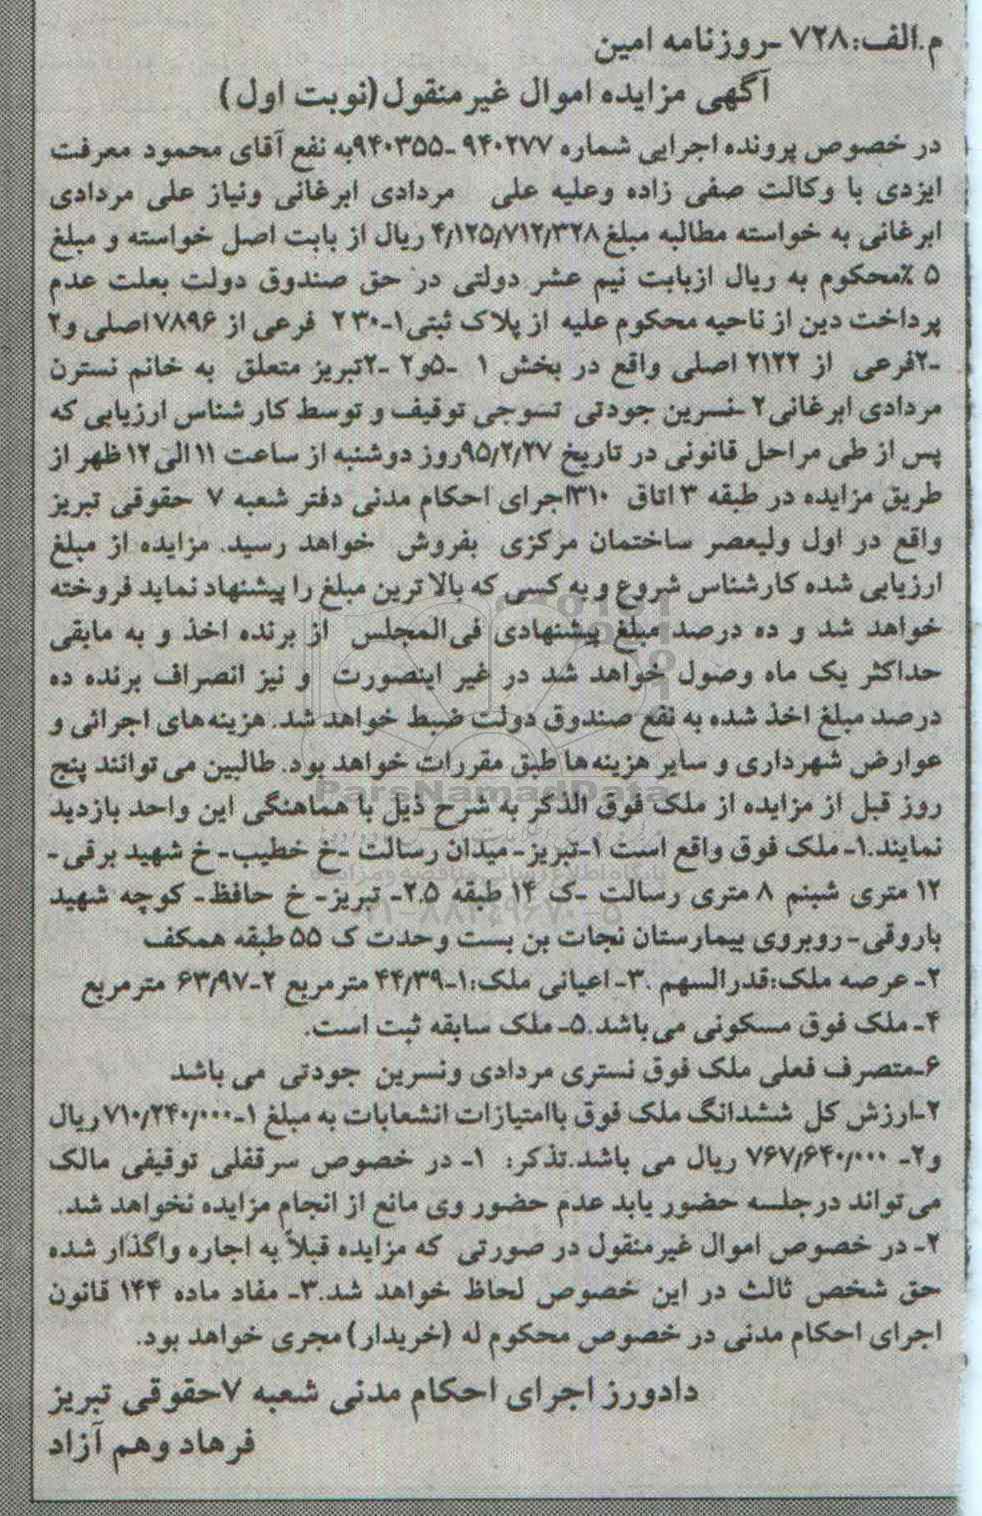 م.الف: ۷۲۸ -روزنامه امین
آگهی مزایده اموال غیرمنقول(نوبت اول)
در خصوص پرونده اجرایی شماره ۹۴۰۲۷۷ -۹۴۰۳۵۵به نفع آقای محمود معرفت
ایزدی با وکالت صفی زاده وعلیه علی مردادی ابرغانی ونیاز علی مردادی
ابرغانی به خواسته مطالبه مبلغ ۴٫۱۲۵٫۷۱۲٫۳۲۸ ریال از بابت اصل خواسته و مبلغ
۵ ٪محکوم به ریال ازبابت نیم عشر دولتی در حق صندوق دولت بعلت عدم
پرداخت دین از ناحیه محکوم علیه از پلاک ثبتی۱-۲۳۰ فرعی از ۷۸۹۶اصلی و۲
-۲فرعی از ۲۱۲۲ اصلی واقع در بخش ۱ -۵و۲ -۲تبریز متعلق به خانم نسترن
مردادی ابرغانی۲ -نسرین جودتی تسوجی توقیف و توسط کار شناس ارزیابی که
پس از طی مراحل قانونی در تاریخ ۹۵/۲/۲۷روز دوشنبه از ساعت ۱۱ الی ۱۲ ظهر از
طریق مزایده در طبقه ۳ اتاق ۳۱۰اجرای احکام مدنی دفتر شعبه ۷ حقوقی تبریز
واقع در اول ولیعصر ساختمان مرکزی بفروش خواهد رسید. مزایده از مبلغ
ارزیابی شده کارشناس شروع و به کسی که بالا ترین مبلغ را پیشنهاد نماید فروخته
خواهد شد و ده درصد مبلغ پیشنهادی فی‌المجلس از برنده اخذ و به مابقی
حداکثر یک ماه وصول خواهد شد در غیر اینصورت و نیز انصراف برنده ده
درصد مبلغ اخذ شده به نفع صندوق دولت ضبط خواهد شد. هزینه‌های اجرائی و
عوارض شهرداری و سایر هزینه‌ها طبق مقررات خواهد بود. طالبین می توانند پنج
ParsNamadData
روز قبل از مزایده از ملک فوق الذکر به شرح ذیل با هماهنگی این واحد بازدید
نمایند.۱- ملک فوق واقع است ۱-تبریز- میدان رسالت -خ خطیب- خ شهید برقی-
پایگاه اطلاع رسانی مناقصه و مزایده
۱۲ متری شبنم ۸ متری رسالت -ک ۱۴ طبقه ۲.۵- تبریز- خ حافظ- کوچه شهید
۰۲۱-۸۸۳۴۹۶۷۰-۵
باروقی- روبروی بیمارستان نجات بن بست وحدت ک ۵۵ طبقه همکف
۲- عرصه ملک:قدرالسهم .۳- اعیانی ملک:۱-۴۴/۳۹ مترمربع ۲-۶۳/۹۷ مترمربع
۴- ملک فوق مسکونی می‌باشد.۵- ملک سابقه ثبت است.
۶-متصرف فعلی ملک فوق نستری مردادی ونسرین جودتی می باشد
۲-ارزش کل ششدانگ ملک فوق باامتیازات انشعابات به مبلغ ۱-۷۱۰٫۲۴۰٫۰۰۰ ریال
و۲- ۷۶۷٫۶۴۰٫۰۰۰ ریال می باشد.تذکر: ۱- در خصوص سرقفلی توقیفی مالک
می‌تواند درجلسه حضور یابد عدم حضور وی مانع از انجام مزایده نخواهد شد.
۲- در خصوص اموال غیرمنقول در صورتی که مزایده قبلاً به اجاره واگذار شده
حق شخص ثالث در این خصوص لحاظ خواهد شد.۳- مفاد ماده ۱۴۴ قانون
اجرای احکام مدنی در خصوص محکوم له (خریدار) مجری خواهد بود.
دادورز اجرای احکام مدنی شعبه ۷حقوقی تبریز
فرهاد وهم آزاد